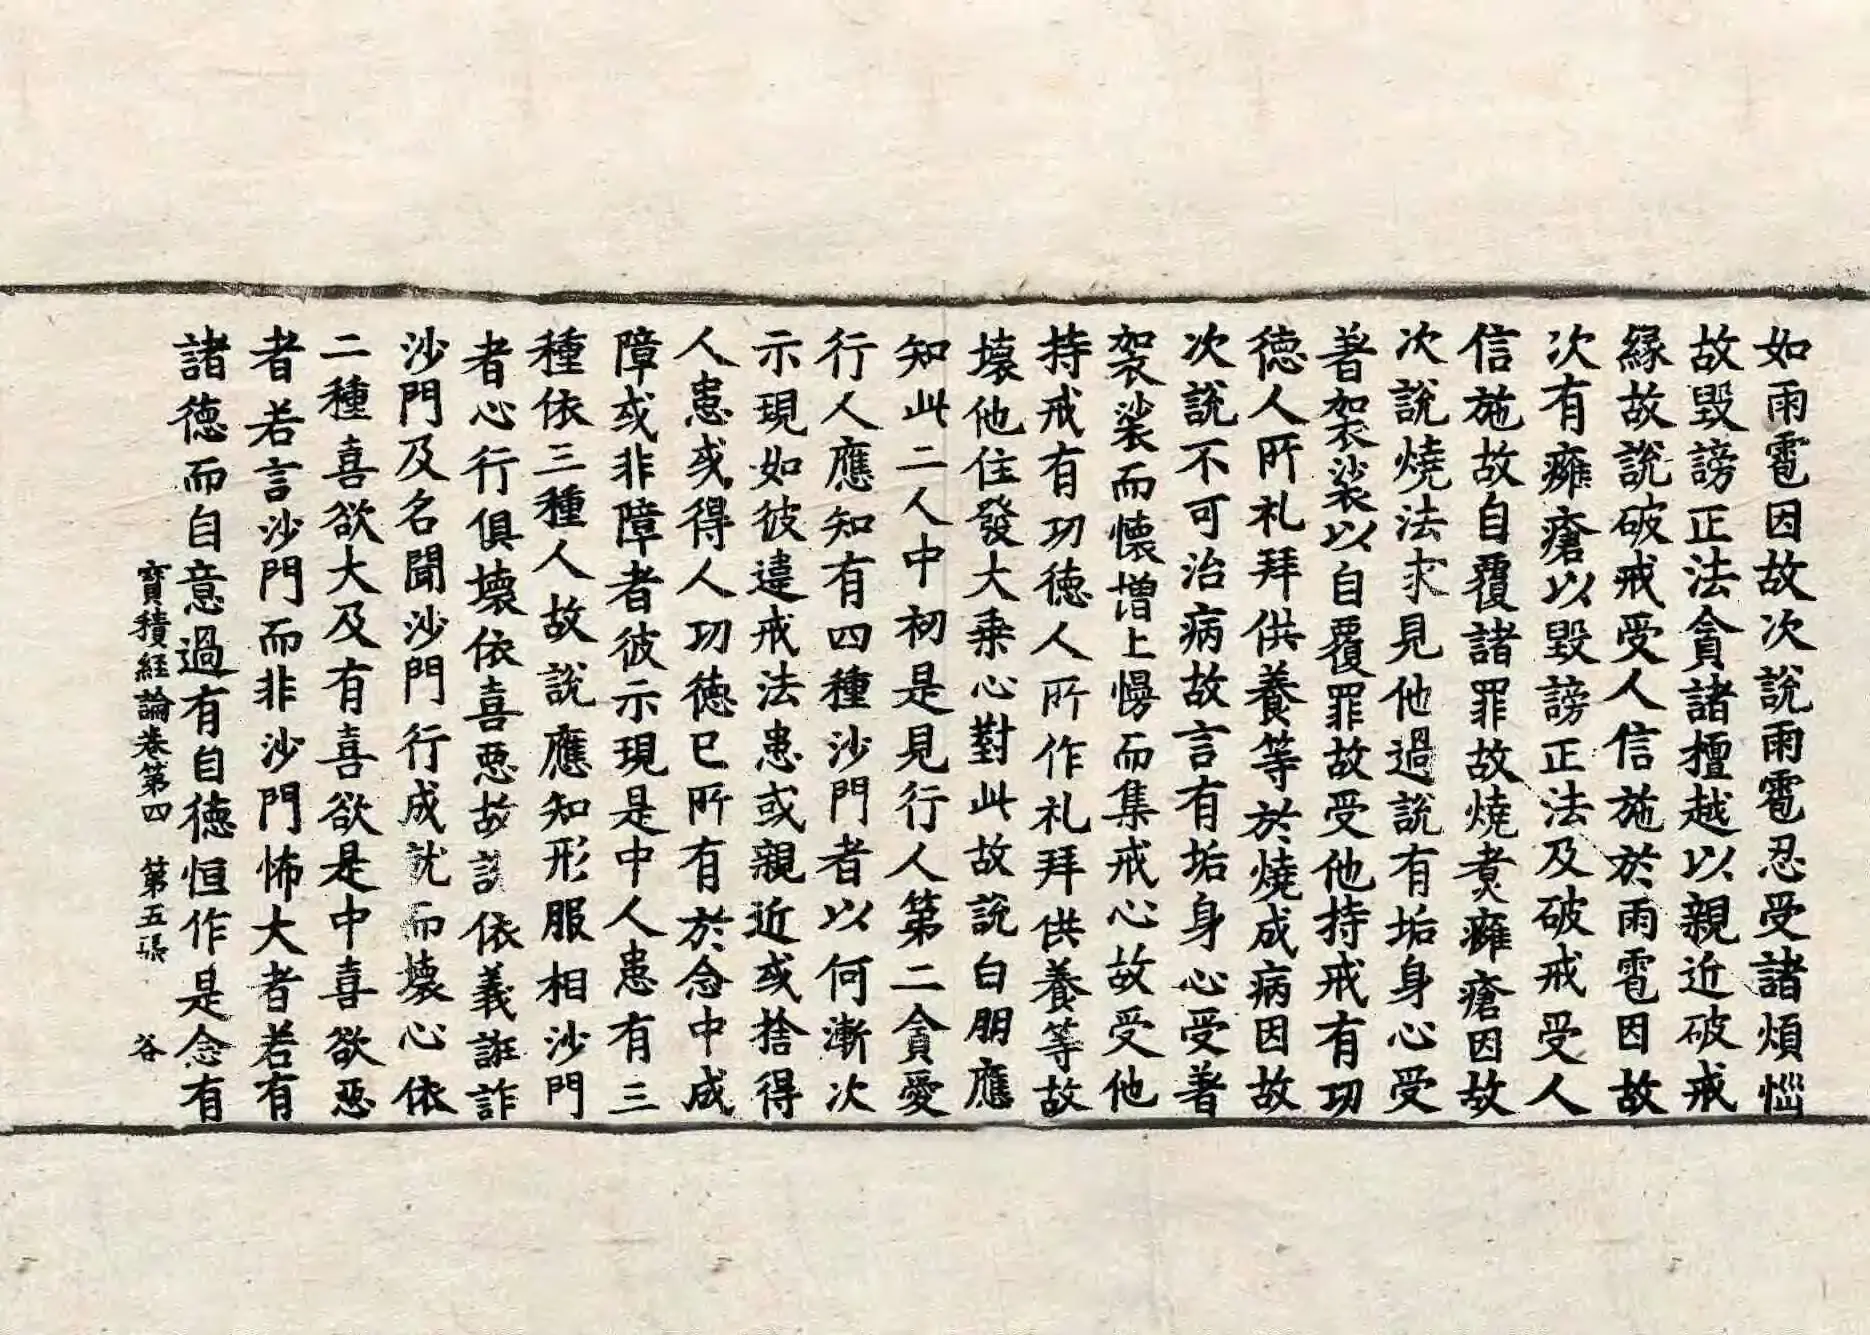 如雨雹因故次說雨雹忍受諸煩惱
故毀謗正法貪諸檀越以親近破戒
緣故說破戒受人信施於雨雹因故
次有癰瘡以毀謗正法及破戒受人
信施故自覆諸罪故燒煮癰瘡因故
次說燒法求見他過說有垢身心受
著袈裟以自覆罪故受他持戒有功
德人所礼拜供養等於燒成病因故
次說不可治病故言有垢身心受著
袈裟而懷增上慢而集戒心故受他
持戒有功德人所作礼拜供養等故
壞他住發大乘心對此故說白朋應
知此二人中初是見行人第二貪愛
行人應知有四種沙門者以何漸次
示現如彼違戒法患或親近或捨得
人患或得人功德已所有於念中成
障或非障者彼示現是中人患有三
種依三種人故說應知形服相沙門
者心行俱壞依喜惡故說依義誑詐
沙門及名聞沙門行成就而壞心依
二種喜欲大及有喜欲是中喜欲惡
者若言沙門而非沙門怖大者若有
諸德而自意過有自德恒作是念有
寶積經論卷第四 第五張 谷